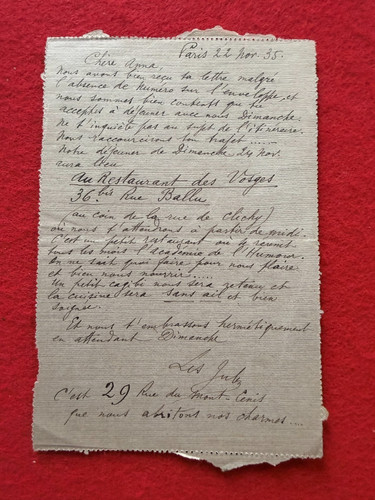 Paris 22 Nov. 35.
Chère Anna.
Nous avons bien reçu ta lettre malgré
l'absence de numéro sur l'enveloppe, et
nous sommes bien contents que tu
acceptes à déjeuner avec nous Dimanche.
Ne t'inquiète pas au sujet de l'itinéraire.
Nous raccourcirons ton trajet.....
Notre déjeuner de Dimanche 24 Nov.
aura lieu
au Restaurant des Vosges
36 bis Rue Ballu
(au coin de la rue de Clichy)
où nous t'attendrons à partir de midi.
C'est un petit restaurant où se réunit
tous les mois l'Académie de l'Humour.
On ne sait quoi faire pour nous plaire
et bien nous nourrir.....
Un petit nous sera et
la cuisine sera sans ail et bien
soignée.
Et nous t'embrassons hermétiquement
en attendant Dimanche
Les
C'est 29 Rue du Mont-Cenis
que nous abritons nos charmes....